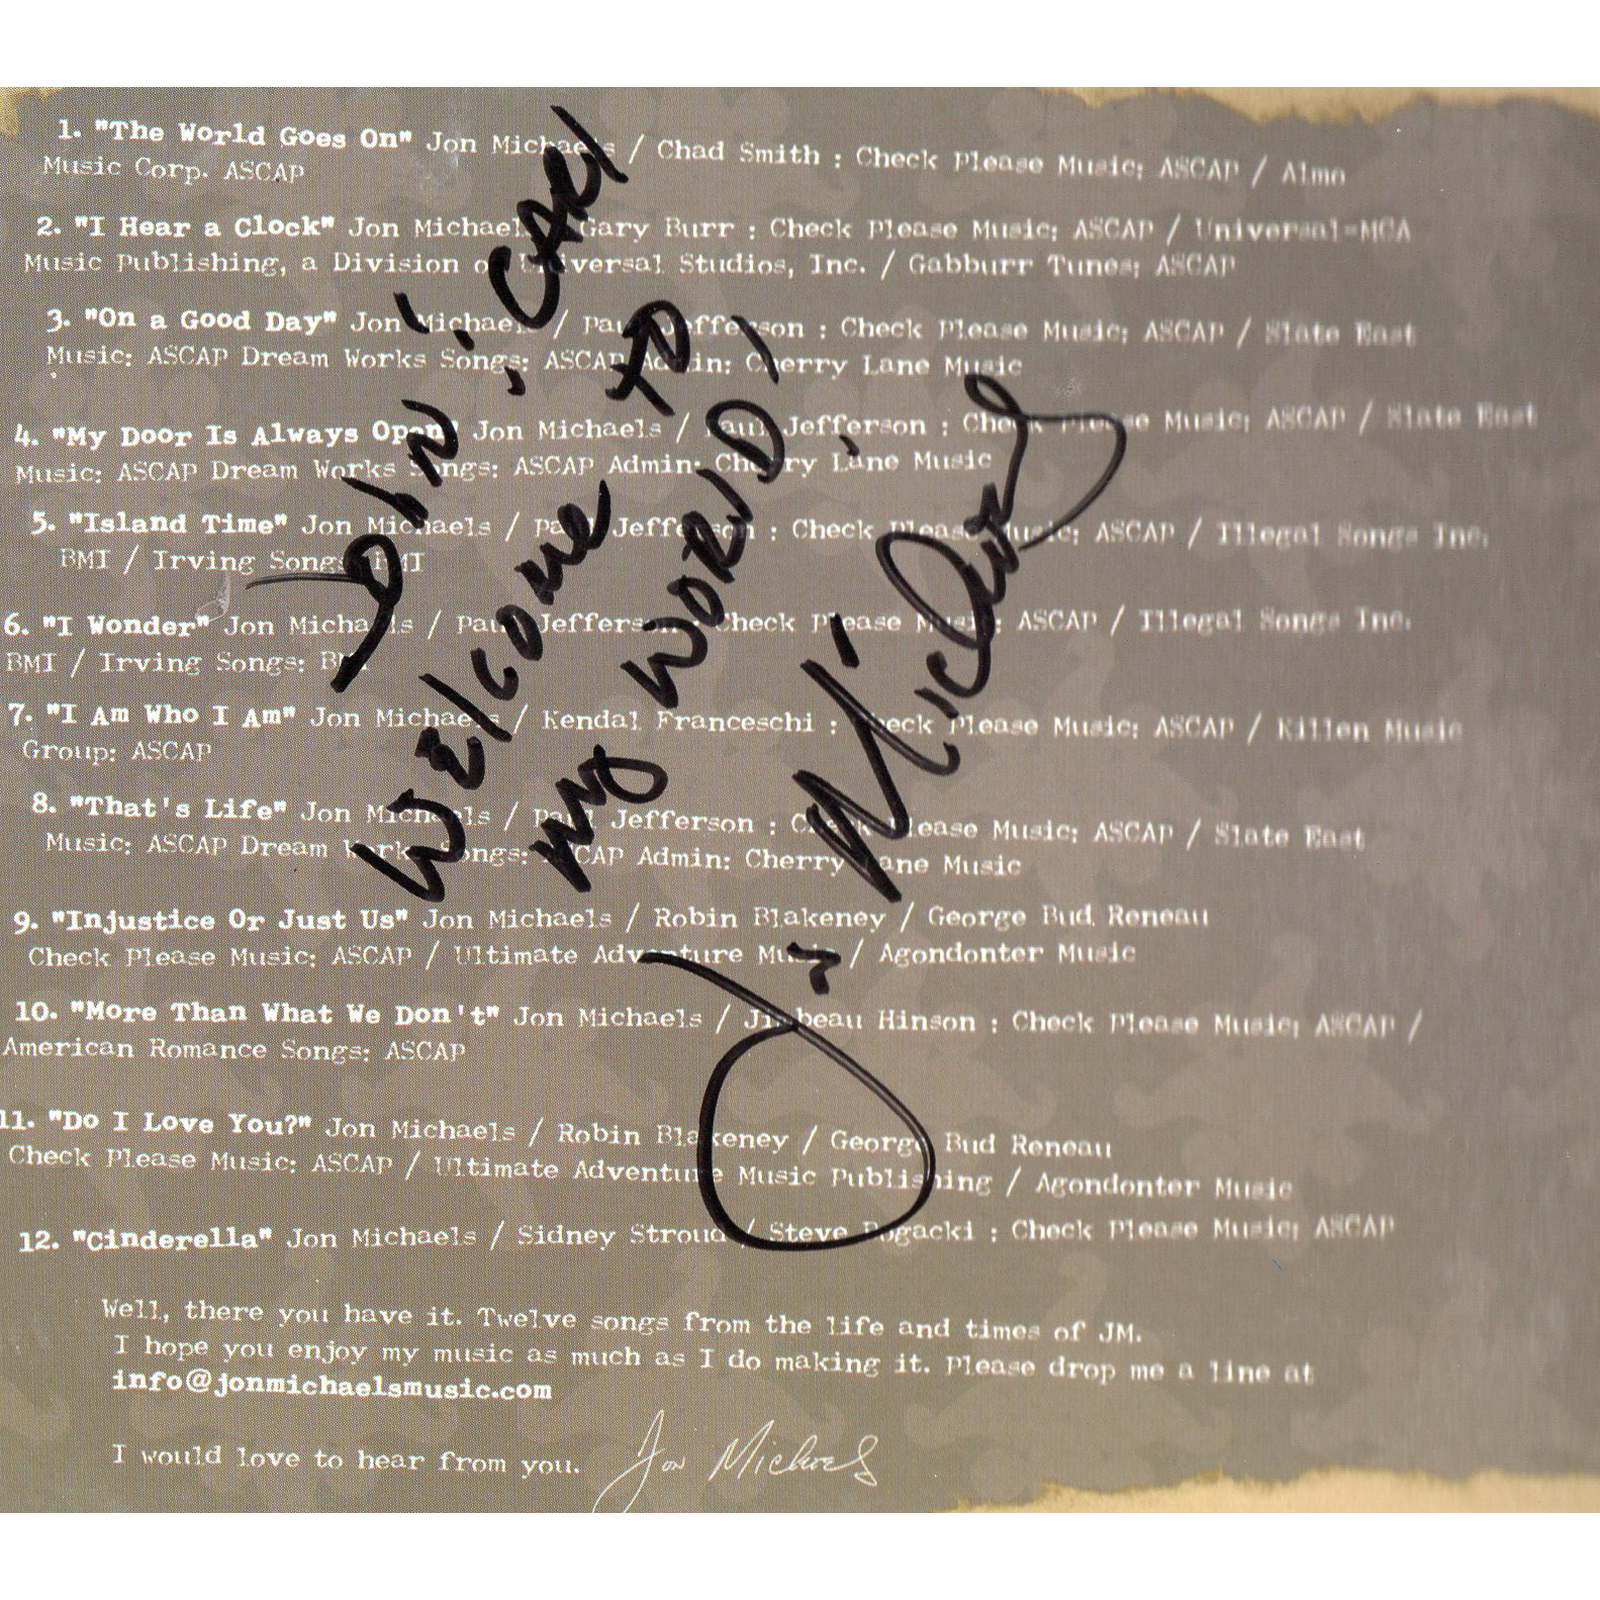 1. "The World Goes On" Jon Michaels / Chad Smith : Check Please Music; ASCAP / Almo
Music Corp. ASCAP
2. "I Hear a Clock" Jon Michaels / Gary Burr : Check Please Music; ASCAP / Universal-MCA
Music Publishing, a Division of Universal Studios, Inc. / Gabburr Tunes; ASCAP
3. "On a Good Day" Jon Michaels / Paul Jefferson : Check Please Music; ASCAP / Slate East
Music: ASCAP Dream Works Songs: ASCAP Admin: Cherry Lane Music
4. "My Door Is Always Open" Jon Michaels / Paul Jefferson : Check Please Music; ASCAP / Slate East
Music: ASCAP Dream Works Songs: ASCAP Admin: Cherry Lane Music
5. "Island Time" Jon Michaels / Paul Jefferson : Check Please Music; ASCAP / Illegal Songs Inc.
BMI / Irving Songs: BMI
6. "I Wonder" Jon Michaels / Paul Jefferson : Check Please Music; ASCAP / Illegal Songs Inc.
BMI / Irving Songs: BMI
7. "I Am Who I Am" Jon Michaels / Kendal Franceschi : Check Please Music; ASCAP / Killen Music
Group: ASCAP
8. "That's Life" Jon Michaels / Paul Jefferson : Check Please Music; ASCAP / Slate East
Music: ASCAP Dream Works Songs: ASCAP Admin: Cherry Lane Music
9. "Injustice Or Just Us" Jon Michaels / Robin Blakeney / George Bud Reneau
Check Please Music: ASCAP / Ultimate Adventure Music / Agondonter Music
10. "More Than What We Don't" Jon Michaels / Jimbeau Hinson : Check Please Music; ASCAP /
American Romance Songs: ASCAP
11. "Do I Love You?" Jon Michaels / Robin Blakeney / George Bud Reneau
Check Please Music: ASCAP / Ultimate Adventure Music Publishing / Agondonter Music
12. "Cinderella" Jon Michaels / Sidney Stroud / Steve Bogacki : Check Please Music; ASCAP
Well, there you have it. Twelve songs from the life and times of JM.
I hope you enjoy my music as much as I do making it. Please drop me a line at
info@jonmichaelsmusic.com
I would love to hear from you. Jon Michaels
CARl
WElcome TO
my WORlD,
Jon Michaels